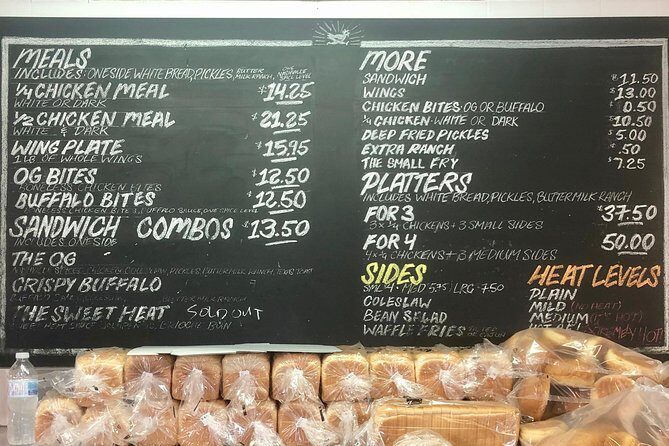 MEALS
INCLUDES: ONE SIDE WHITE BREAD, PICKLES, BUTTER MILK RANCH, ONE NASHVILLE SPICE LEVEL
1/4 CHICKEN MEAL $14.25
WHITE OR DARK
1/2 CHICKEN MEAL $21.25
WHITE & DARK
WING PLATE $15.95
1 LB OF WHOLE WINGS
OG BITES $12.50
BONELESS CHICKEN BITES
BUFFALO BITES 12.50
BONELESS CHICKEN BITES, BUFFALO SAUCE, ONE SPICE LEVEL
SANDWICH COMBOS $13.50
INCLUDES ONE SIDE
THE OG
PICKLES, BUTTERMILK RANCH, TEXAS TOAST
CRISPY BUFFALO
BUTTERMILK RANCH
THE SWEET HEAT SOLD OUT
BRIOCHE BUN
MORE
SANDWICH $11.50
WINGS $13.00
CHICKEN BITES OG OR BUFFALO 0.50
1/4 CHICKEN WHITE OR DARK $10.50
DEEP FRIED PICKLES $5.00
EXTRA RANCH .50
THE SMALL FRY $7.25
PLATTERS
INCLUDES WHITE BREAD, PICKLES, BUTTERMILK RANCH
FOR 3 $37.50
3 x 1/4 CHICKENS + 3 SMALL SIDES
FOR 4 50.00
4 x 1/4 CHICKENS + 3 MEDIUM SIDES
SIDES
SML 4 MED 5.95 LRG 7.50
COLESLAW
BEAN SALAD
WAFFLE FRIES
HEAT LEVELS
PLAIN
MILD (NO HEAT)
MEDIUM (IT'S HOT)
HOT